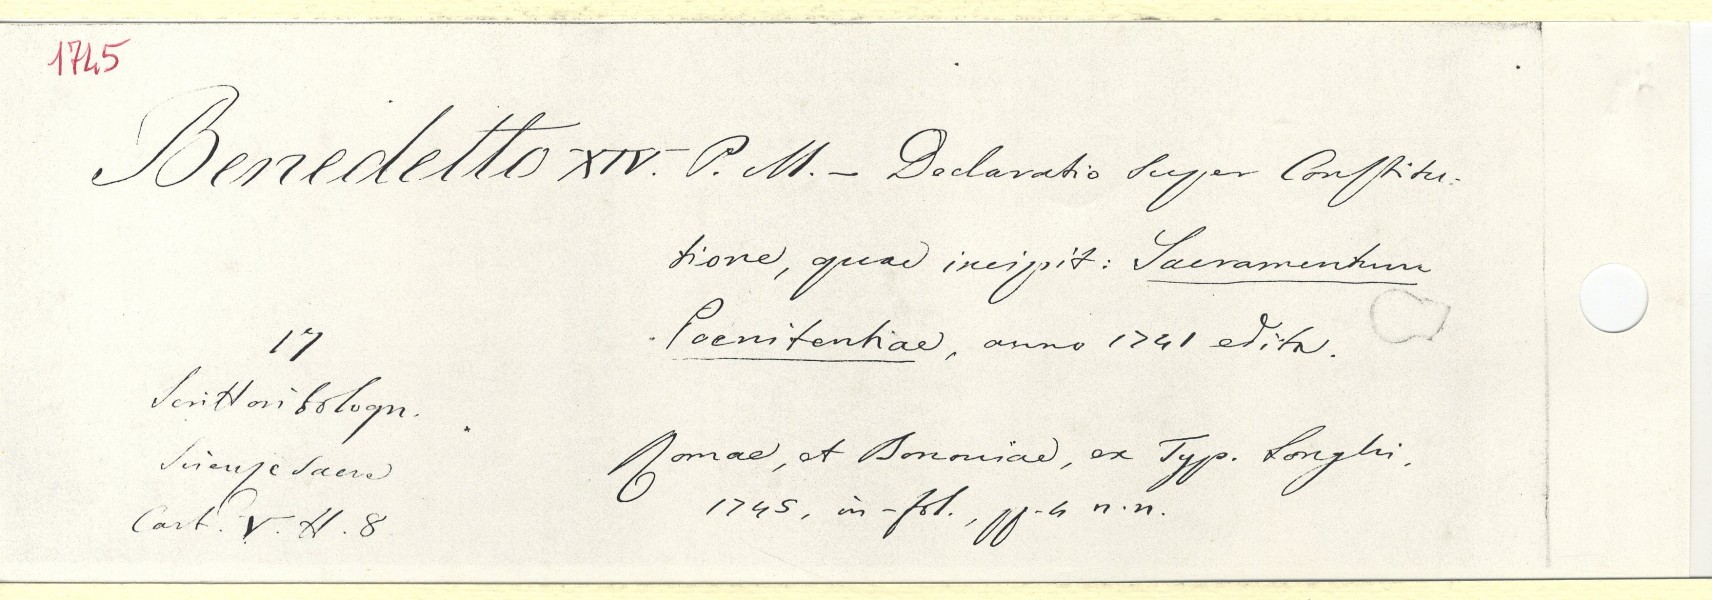 1745
Benedetto XIV. P. M. – Declaratio super Constitu-
tione, quae incipit: Sacramentum
Poenitentiae, anno 1741 edita.
17
Scrittori bologn.
Scienze Sacre
Cart. V. H. 8
Romae, et Bononiae, ex Typ. Longhi,
1745, in-fol., pp. 4 n.n.